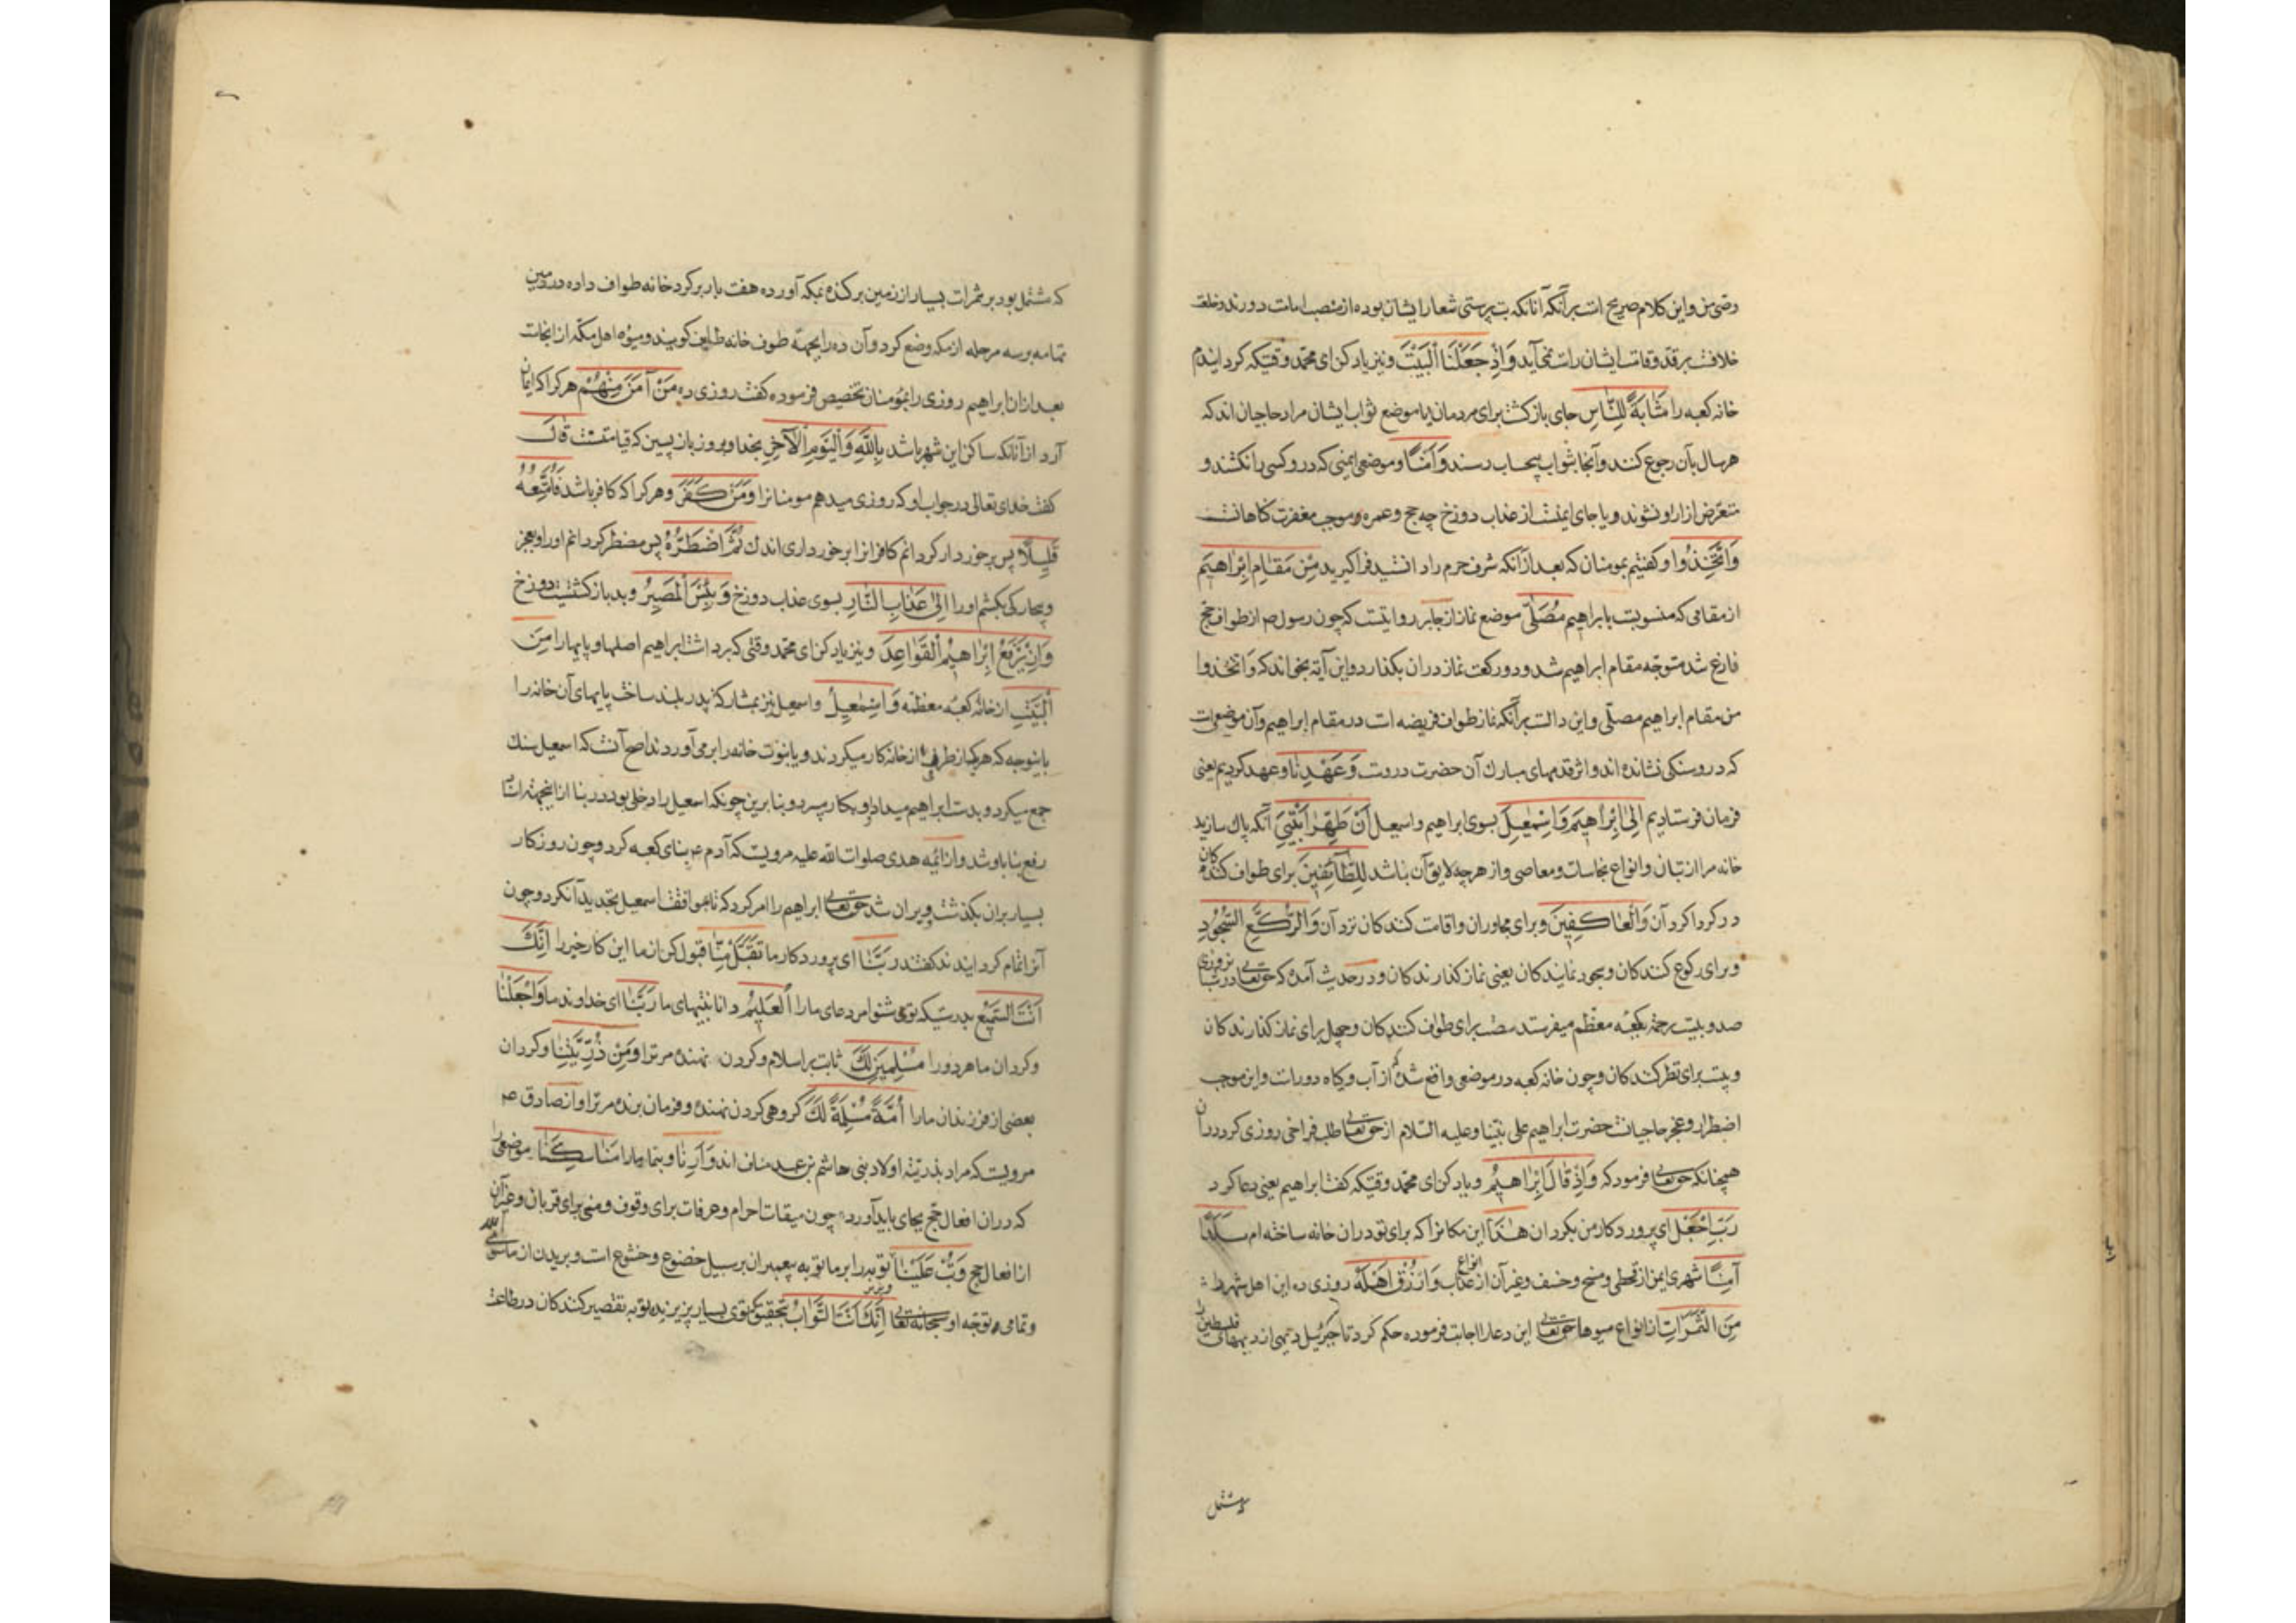 وضی من و این کلام صریح است بر آنکه آنانکه بت پرستی شعار ایشان بوده از منصب امامت دورند و خلعت
خلافت بر قد و قامت ایشان راست نمی‌آید وَاِذْ جَعَلْنَا الْبَیْتَ و نیز یاد کن ای محمد وقتیکه کردانیدم
خانه کعبه را مَثَابَةً لِلنَّاسِ جای بازکشت برای مردمان یا موضع ثواب ایشان مراد حاجیان اند که
هر سال بآن رجوع کنند و آنجا بثواب بیحساب رسند وَاَمْنًا و موضعی ایمنی که درو کسی را نکشند و
متعرض ازار او نشوند و یا جای ایمنست از عذاب دوزخ چه حج و عمره موجب مغفرت کناهانست
وَاتَّخِذُوا و کفتیم بمومنان که بعد از آنکه شرف حرم را دانستید فرا کیرید مِنْ مَقَامِ اِبْرٰاهِیمَ
از مقامی که منسوبست بابراهیم مُصَلًّی موضع نماز از جابر روایتست که چون رسول ص از طواف حج
فارغ شد متوجه مقام ابراهیم شد و دو رکعت نماز دران بکذارد و این آیه بخواند که وَاتَّخذوا
من مقام ابراهیم مصلّی و این دالست بر آنکه نماز طواف فریضه است در مقام ابراهیم و آن موضعی است
که درو سنکی نشانده اند و اثر قدمهای مبارک آن حضرت دروست وَعَهِدْنَا و عهد کردیم یعنی
فرمان فرستادیم اِلیٰ اِبْرٰاهِیمَ وَاِسْمٰعِیلَ بسوی ابراهیم و اسمعیل اَنْ طَهِّرٰا بَیْتِیَ آنکه پاک سازید
خانه مرا از بتان و انواع نجاسات و معاصی و از هر چه لایق آن نباشد لِلطَّائِفِینَ برای طواف کنندکان
در کرداکرد آن وَالْعَاکِفِینَ و برای مجاوران و اقامت کنندکان نزد آن وَالرُّکَّعِ السُّجُودِ
و برای رکوع کنندکان و سجود نمایندکان یعنی نماز کذارندکان و در حدیث آمده که حقتعالی در هر روزی
صد و بیست رحمة بکعبه معظم میفرستد شصت برای طواف کنندکان و چهل برای نماز کذارندکان
و بیست برای نظر کنندکان و چون خانه کعبه در موضعی واقع شده که از آب و کیاه دور است و این موجب
اضطرار و عجز حاجیانست حضرت ابراهیم علی نبینا و علیه السلام از حقتعالی طلب فراخی روزی کرد دران
همچنانکه حقتعالی فرمود که وَاِذْ قٰالَ اِبْرٰاهِیمُ و یاد کن ای محمد وقتیکه کفت ابراهیم یعنی دعا کرد
رَبِّ اجْعَلْ ای پروردکار من بکردان هٰذَا این مکانرا که برای تو دران خانه ساخته ام بَلَدًا
آمِنًا شهری ایمن از قحطی و مسخ و خسف و غیر آن از انواع عذاب وَارْزُقْ اَهْلَهُ روزی ده این اهل شهر را
مِنَ الثَّمَرَاتِ از انواع میوها حقتعالی این دعا را اجابت فرموده حکم کرد تا جبرئیل دیهی از دیهای فلسطین
که مشتمل
که مشتمل بود بر ثمرات بسیار از زمین برکنده بمکه آورده هفت بار برکرد خانه طواف داده در زمین
تهامه بر سه مرحله از مکه وضع کرد و آن ده را بجهة طوف خانه طایف کویند و میوه اهل مکه از انجاست
بعد ازان ابراهیم روزی را بمومنان تخصیص فرموده کفت روزی ده مَنْ آمَنَ مِنْهُمْ هر کرا که ایمان
آرد از آنانکه ساکن این شهر باشد بِاللّٰهِ وَالْیَوْمِ الْآخِرِ بخدا و بروز بازپسین که قیامتست قٰالَ
کفت خدای تعالی در جواب او که روزی میدهم مومنانرا وَمَنْ کَفَرَ و هر کرا که کافر باشد فَاُمَتِّعُهُ
قَلِیلًا پس برخوردار کردانم کافرانرا برخورداری اندک ثُمَّ اَضْطَرُّهُ پس مضطر کردانم او را و بعجز
و بیچارکی بکشم او را اِلیٰ عَذَابِ النَّارِ بسوی عذاب دوزخ وَبِئْسَ الْمَصِیرُ و بد بازکشتیست دوزخ
وَاِذْ یَرْفَعُ اِبْرٰاهِیمُ الْقَوَاعِدَ و نیز یاد کن ای محمد وقتی که برداشت ابراهیم اصلها و پایها را مِنَ
الْبَیْتِ از خانه کعبه معظمه وَاِسْمٰعِیلُ و اسمعیل نیز بمشارکت پدر بلند ساخت پایهای آن خانه را
باینوجه که هر یک از طرفی از خانه کار میکردند و یا بنوبت خانه را برمی‌آوردند اصح آنست که اسمعیل سنک
جمع میکرد و بدست ابراهیم میداد و او بکار میبرد و بنابرین چونکه اسمعیل را دخلی بود در بنا ازاینجهة اسناد
رفع بنا باو شد و از ائمه هدی صلوات الله علیه مرویست که آدم ع بنای کعبه کرد و چون روزکار
بسیار بران بکذشت و ویران شد حقتعالی ابراهیم را امر کرد که تا بموافقت اسمعیل تجدید آن کرد و چون
آنرا تمام کردایندند کفتند رَبَّنَا ای پروردکار ما تَقَبَّلْ مِنَّا قبول کن از ما این کار خیر را اِنَّکَ
اَنْتَ السَّمِیعُ بدرستیکه توئی شنوا مر دعای ما را الْعَلِیمُ دانا بنیتهای ما رَبَّنَا ای خداوند ما وَاجْعَلْنَا
و کردان ما هر دو را مُسْلِمَیْنِ لَکَ ثابت بر اسلام و کردن نهنده مر ترا وَمِنْ ذُرِّیَّتِنَا و کردان
بعضی از فرزندان ما را اُمَّةً مُسْلِمَةً لَکَ کروهی کردن نهنده و فرمان برنده مر ترا و از صادق ع
مرویست که مراد بذریة اولاد بنی هاشم بن عبد مناف اند وَاَرِنَا و بنما ما را مَنَاسِکَنَا موضعی را
که دران افعال حج بجای باید آورد چون میقات احرام و عرفات برای وقوف و منی برای قربان و غیر آن
از افعال حج وَتُبْ عَلَیْنَا توبه را بر ما توبه پیغمبران بر سبیل خضوع و خشوع است و بریدن از ماسوی الله
و تمامی توجه او سبحانه تعالی اِنَّکَ اَنْتَ التَّوَّابُ بتحقیق که توی بسیار پزیرنده توبه تقصیر کنندکان در طاعت